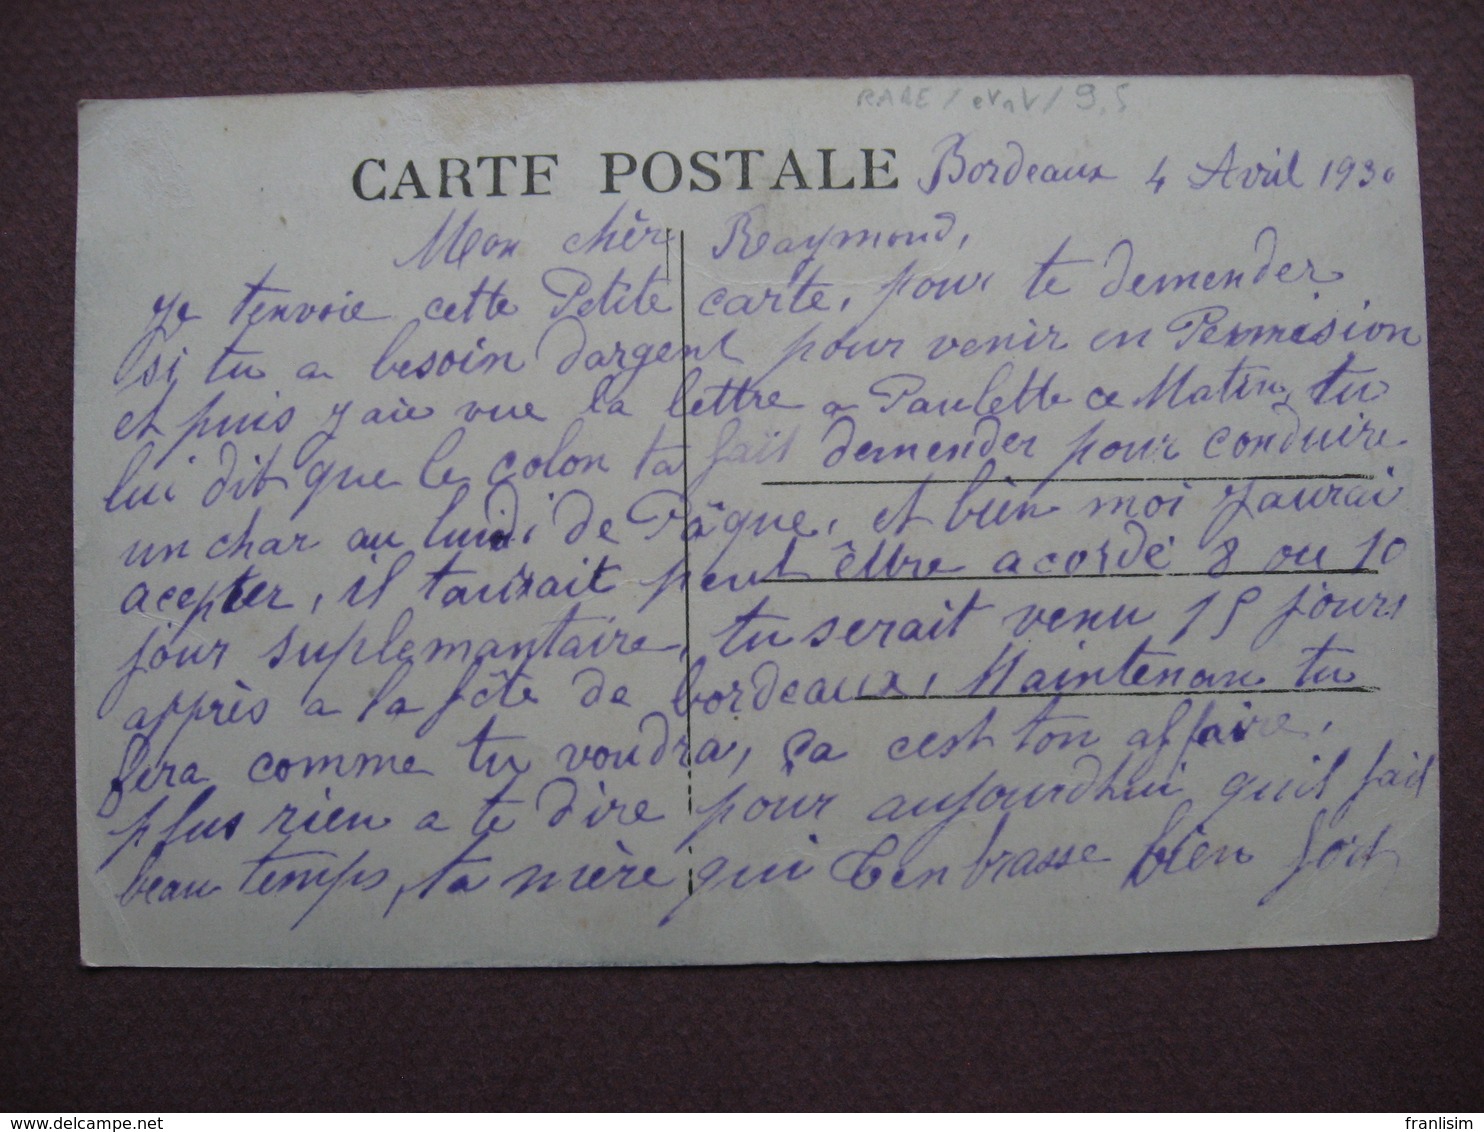 RARE / 9,5
CARTE POSTALE Bordeaux 4 Avril 1930
Mon chèr Raymond,
Je tenvoie cette Petite carte, pour te demender
si tu a besoin dargent pour venir en Permision
et puis j'aie vue la lettre a Paulette ce Matin, tu
lui dit que le colon ta fait demender pour conduire
un char au lundi de Pâque, et bien moi j'aurai
acepter, il taurait peut être acordé 8 ou 10
jour suplemantaire, tu serait venu 15 jours
apprès a la fête de bordeaux, Maintenan tu
fera comme tu voudra, ça cest ton affaire,
plus rien a te dire pour aujourdhui quil fait
beau temps, ta mère qui t'enbrasse bien fort
Visit now: www.delcampe.net
franlisim